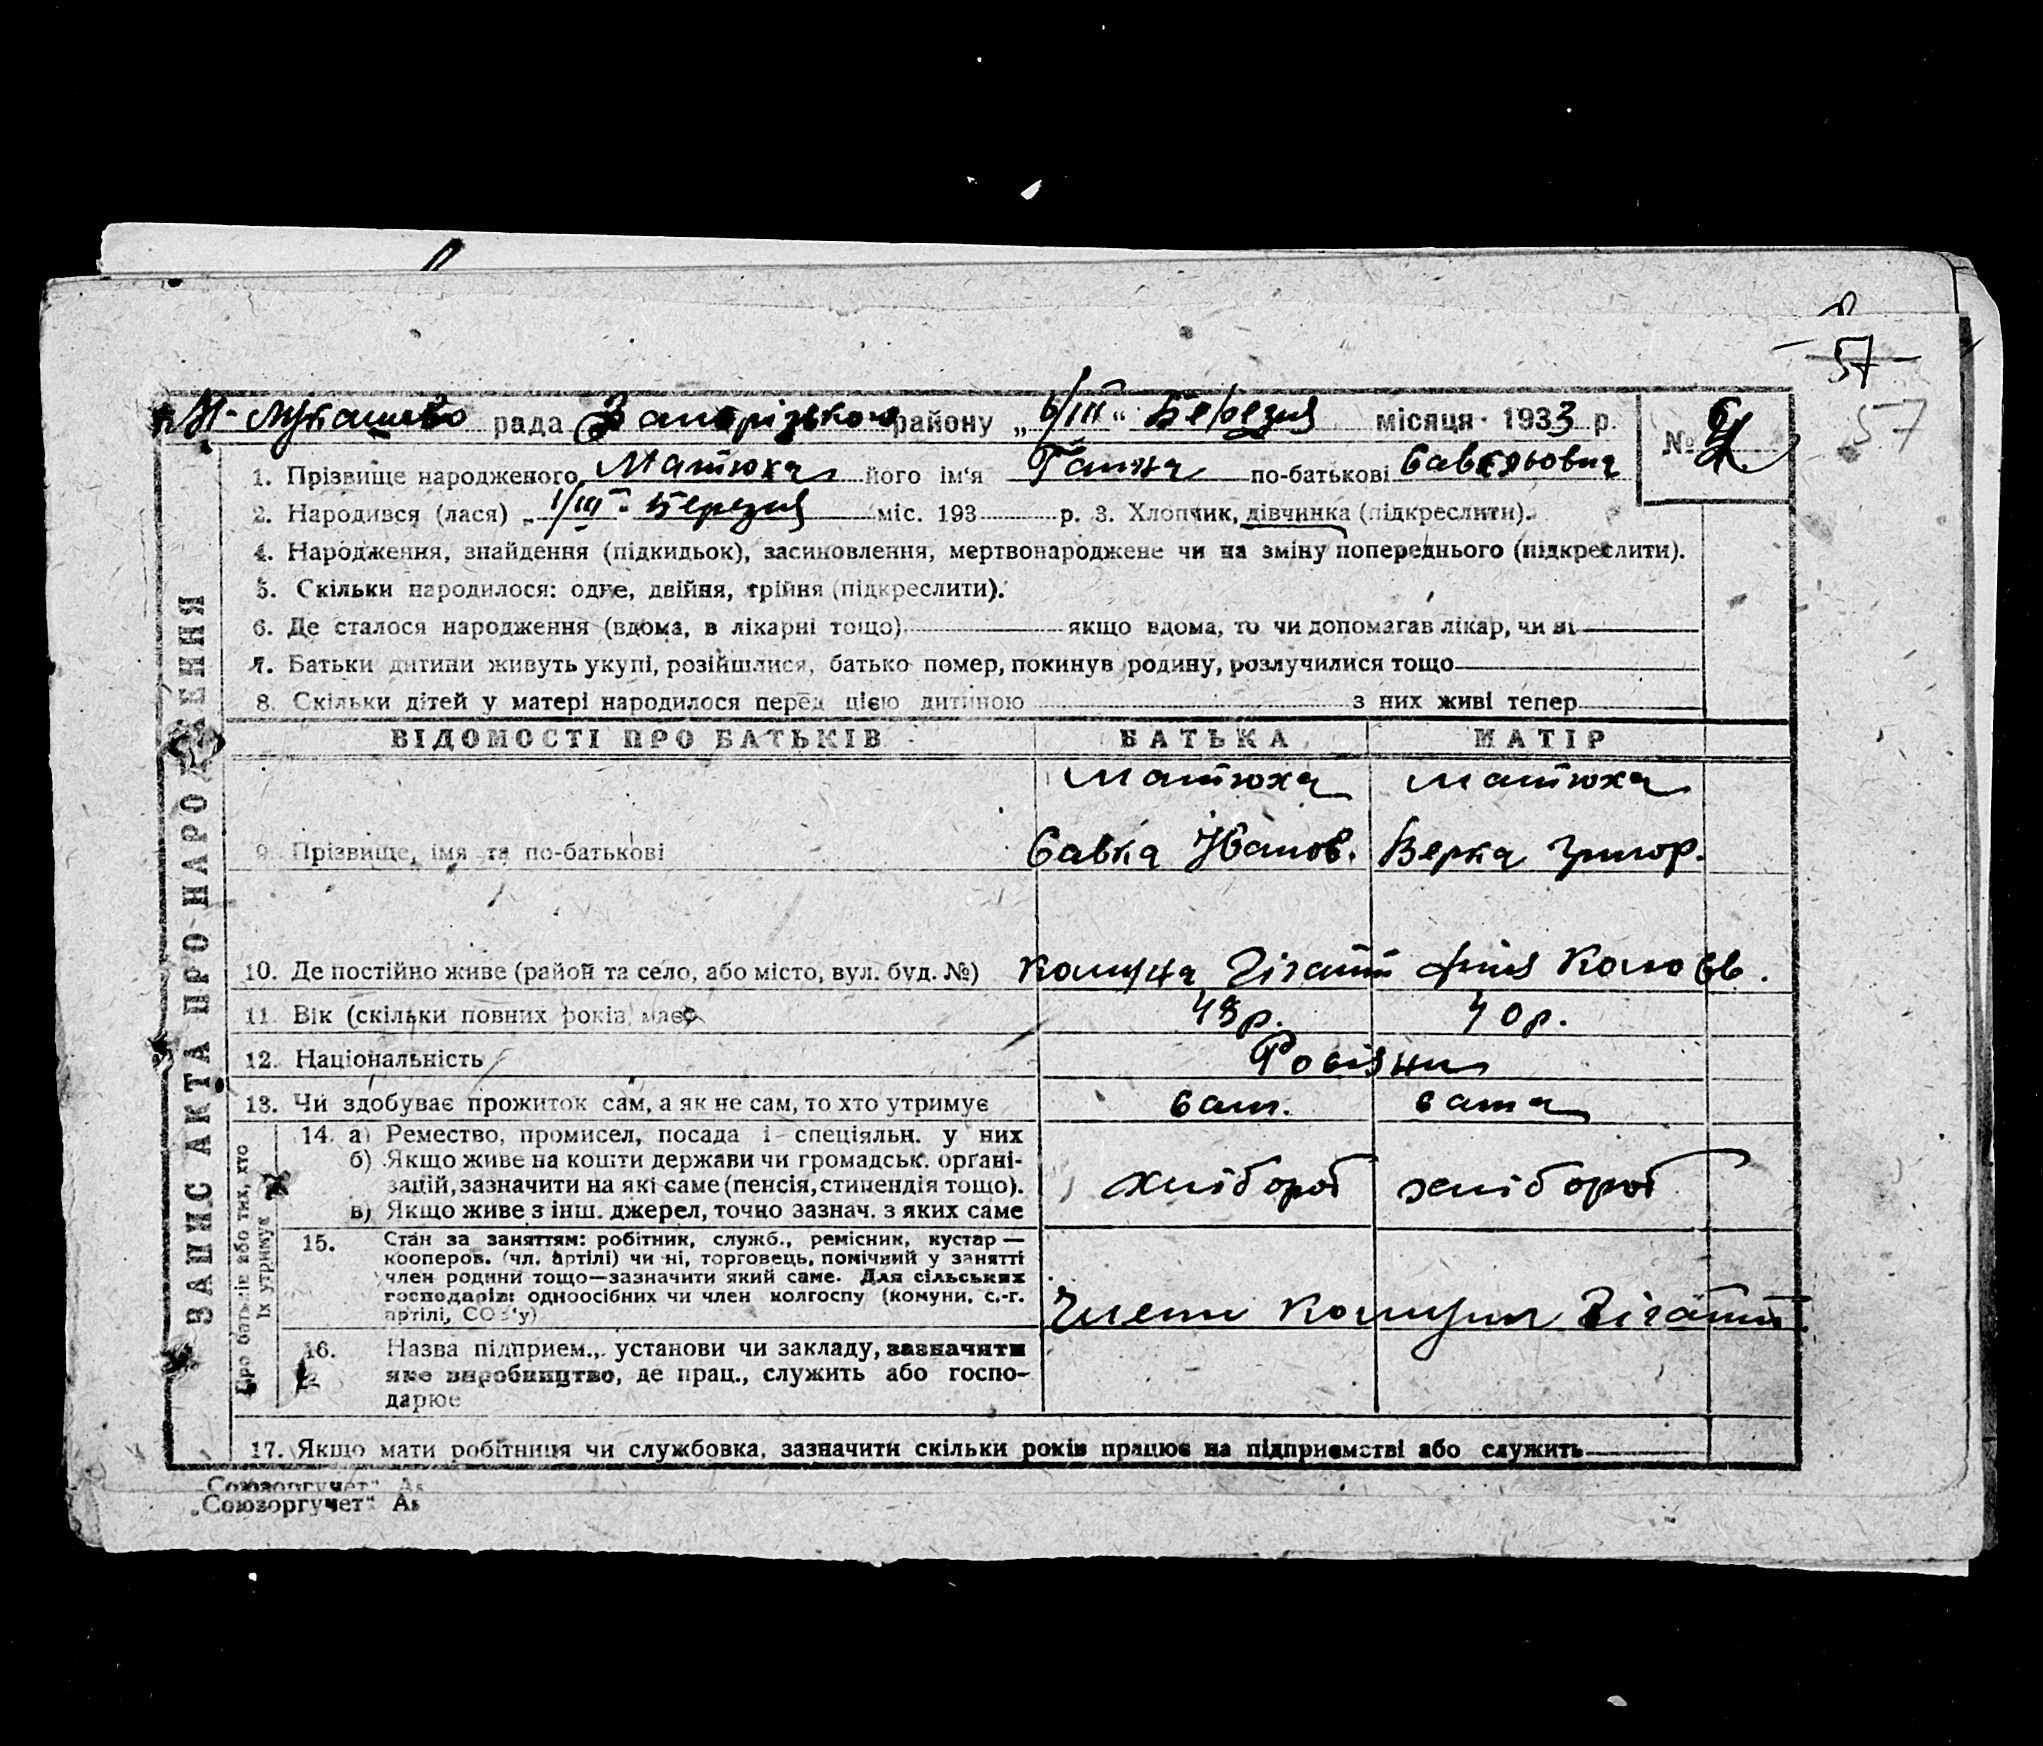 57
57
Н-Лукашево рада Запорізького району „6/III“ Березня місяця 1933 р. №
1. Прізвище народженого Матюха його ім'я Ганна по-батькові Савельовна
2. Народився (лася) „1/III“ Березня міс. 193 р. 3. Хлопчик, дівчинка (підкреслити).
4. Народження, знайдення (підкидьок), засиновлення, мертвонароджене чи на зміну попереднього (підкреслити).
5. Скільки народилося: одне, двійня, трійня (підкреслити).
6. Де сталося народження (вдома, в лікарні тощо) якщо вдома, то чи допомагав лікар, чи ні
7. Батьки дитини живуть укупі, розійшлися, батько помер, покинув родину, розлучилися тощо
8. Скільки дітей у матері народилося перед цією дитиною з них живі тепер
ЗАПИС АКТА ПРО НАРОДЖЕННЯ
ВІДОМОСТІ ПРО БАТЬКІВ БАТЬКА МАТІР
Матюха Матюха
9. Прізвище, імя та по-батькові Савка Іванов. Верка Григор.
10. Де постійно живе (район та село, або місто, вул. буд. №) Комуна Гігант
11. Вік (скільки повних років має) 48р. 40р.
12. Національність
13. Чи здобуває прожиток сам, а як не сам, то хто утримує сам. сама
Про батьків або тих, хто
їх утримує
14. а) Ремество, промисел, посада і спеціяльн. у них
б) Якщо живе на кошти держави чи громадськ. органі-
зацій, зазначити на які саме (пенсія, стипендія тощо). хлібороб хлібороб
в) Якщо живе з інш. джерел, точно зазнач. з яких саме
15. Стан за заняттям: робітник, служб., ремісник, кустар —
кооперов. (чл. артілі) чи ні, торговець, помічний у занятті
член родини тощо—зазначити який саме. Для сільських
господарів: одноосібних чи член колгоспу (комуни, с.-г.
артілі, СОЗ'у) Члени Комуни Гігант.
16. Назва підприєм., установи чи закладу, зазначити
яке виробництво, де прац., служить або госпо-
дарює
17. Якщо мати робітниця чи службовка, зазначити скільки років працює на підприємстві або служить
„Союзоргучет“
„Союзоргучет“